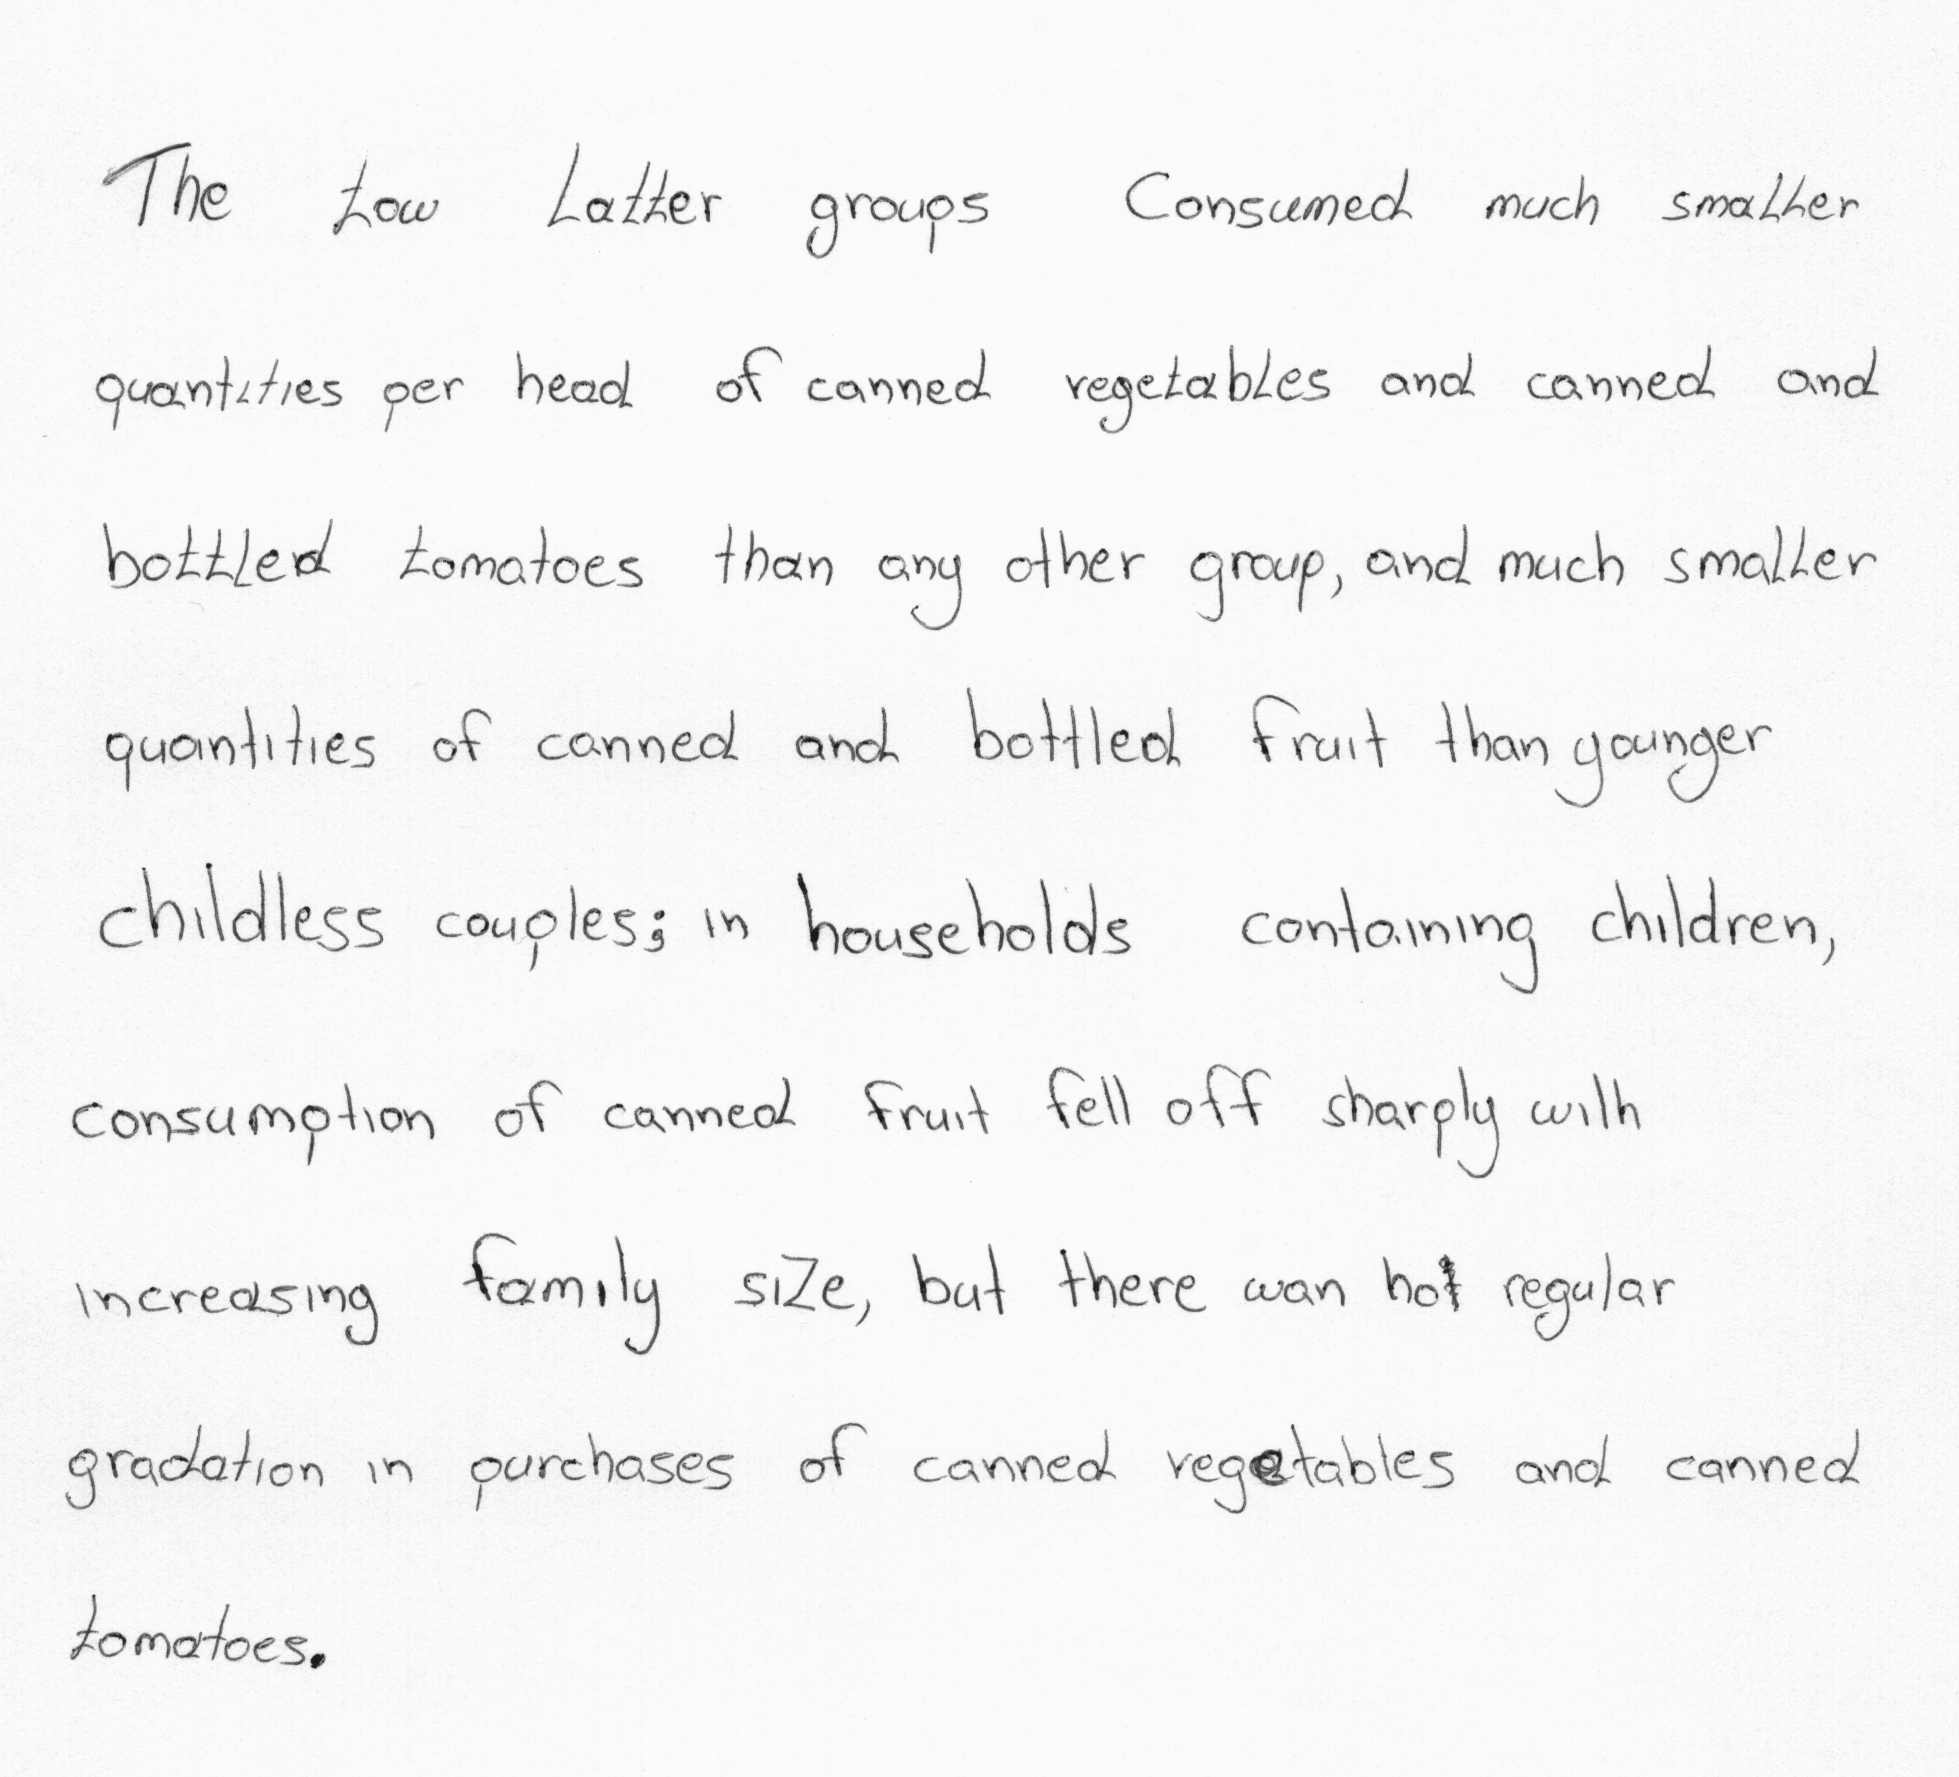 The tow Latter groups Consumed much smaller
quantities per head of canned vegetables and canned and
bottled tomatoes than any other group, and much smaller
quantities of canned and bottled fruit than younger
childless couples; in households containing children,
consumption of canned fruit fell off sharply with
increasing family size, but there wan not regular
gradation in purchases of canned vegetables and canned
tomatoes.